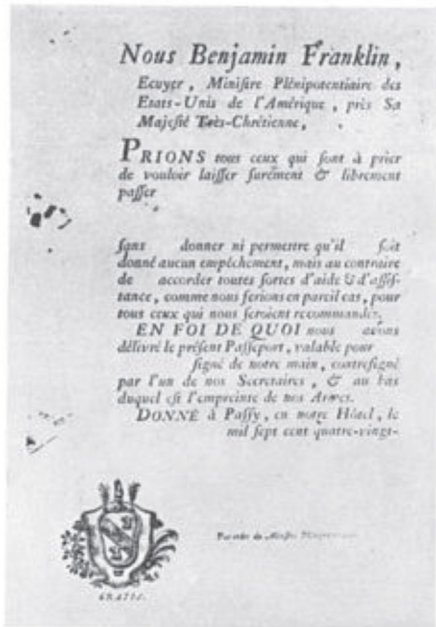 Nous Benjamin Franklin,
Ecuyer, Ministre Plénipotentiaire des
Etats-Unis de l'Amérique, près Sa
Majesté Très-Chrétienne,
PRIONS tous ceux qui sont à prier
de vouloir laisser surement & librement
passer
sans donner ni permettre qu'il soit
donné aucun empêchement, mais au contraire
de accorder toutes sortes d'aide & d'assis-
tance, comme nous ferions en pareil cas, pour
tous ceux qui nous seroient recommandés.
EN FOI DE QUOI nous avons
délivré le présent Passeport, valable pour
signé de notre main, contresigné
par l'un de nos Secretaires, & au bas
duquel est l'empreinte de nos Armes.
DONNÉ à Passy, en notre Hôtel, le
mil sept cent quatre-vingt-
Par ordre du Ministre Plénipotentiaire
GRATIS.